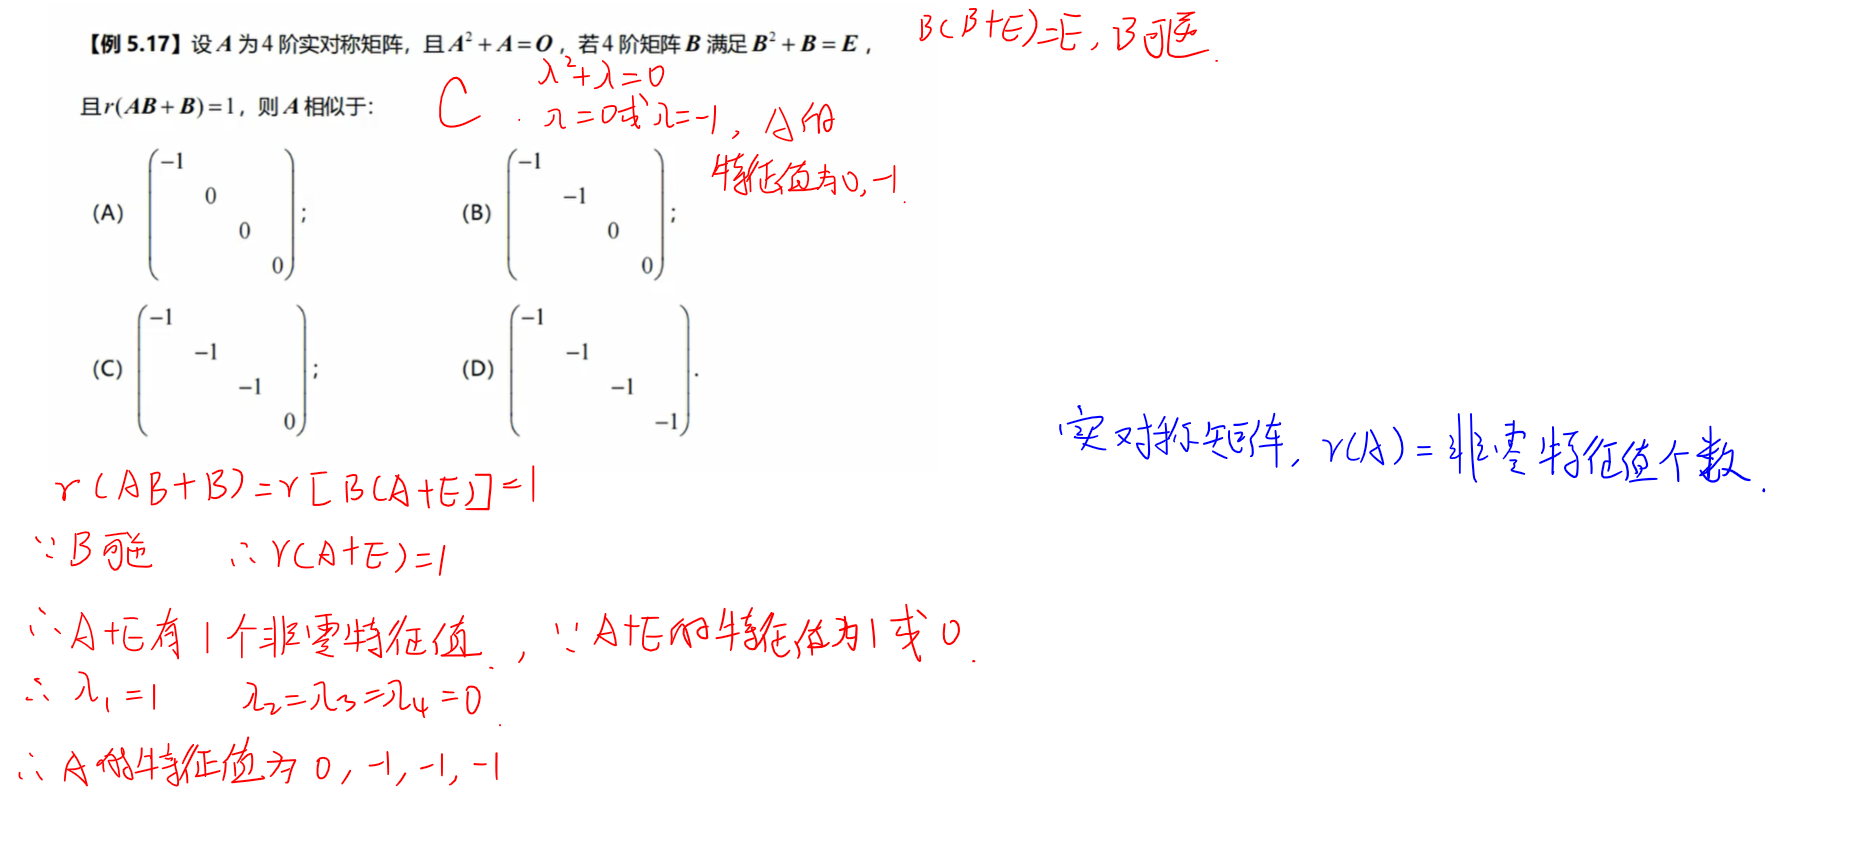 【例 5.17】设 A 为 4 阶实对称矩阵，且 A² + A = O，若 4 阶矩阵 B 满足 B² + B = E，
B(B+E)=E, B可逆.
且 r(AB + B) = 1，则 A 相似于：
C
λ²+λ=0
λ=0或λ=-1, A的
特征值为0,-1.
(A) (-1 0 0 0)；
(B) (-1 -1 0 0)；
(C) (-1 -1 -1 0)；
(D) (-1 -1 -1 -1).
实对称矩阵, r(A)=非零特征值个数.
r(AB+B)=r[B(A+E)]=1
∵B可逆 ∴r(A+E)=1
∴A+E有1个非零特征值, ∵A+E的特征值为1或0.
∴λ₁=1 λ₂=λ₃=λ₄=0.
∴A的特征值为0,-1,-1,-1